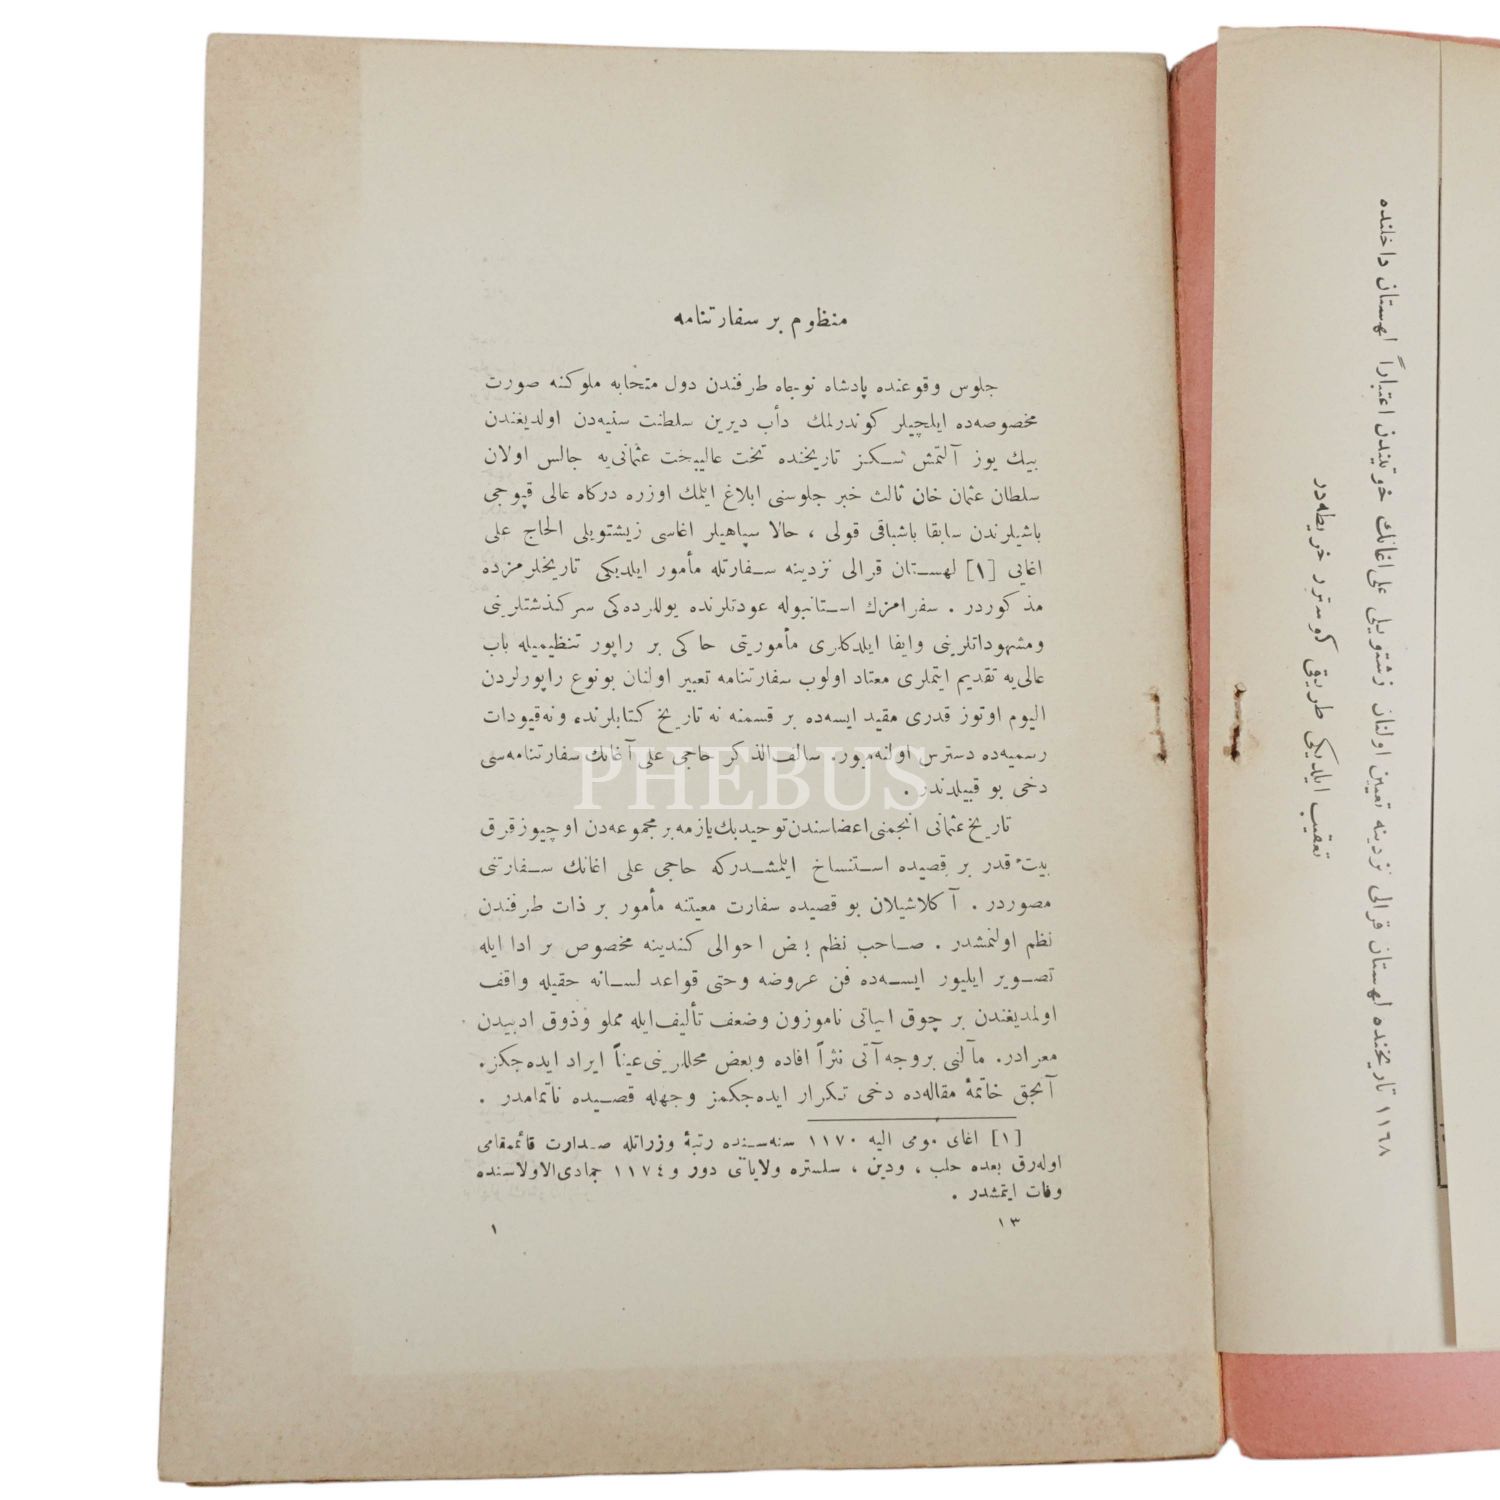 منظوم بر سفارتنامه
جلوس وقوعنده پادشاه نوجاه طرفندن دول متحابه ملوكنه صورت
مخصوصه‌ده ایلچیلر كوندرلمك دأب دیرین سلطنت سنیه‌دن اولدیغندن
بیك یوز آلتمش سكز تاریخنده تخت عالیبخت عثمانی‌یه جالس اولان
سلطان عثمان خان ثالث خبر جلوسنی ابلاغ ایلمك اوزره دركاه عالی قپوجی
باشیلرندن سابقا باشباقی قولی ، حالا سپاهیلر اغاسی زیشتویلی الحاج علی
اغایی [١] لهستان قرالی نزدینه سفارتله مأمور ایلدیكی تاریخلرمزده
مذكوردر . سفرامزك استانبوله عودتلرنده یوللرده‌كی سركذشتلرینی
ومشهوداتلرینی وایفا ایلدكلری مأموریتی حاكی بر راپور تنظیمیله باب
عالی‌یه تقدیم ایتملری معتاد اولوب سفارتنامه تعبیر اولنان بونوع راپورلردن
الیوم اوتوز قدری مقید ایسه‌ده بر قسمنه نه تاریخ كتابلرنده ونه‌قیودات
رسمیه‌ده دسترس اولنه‌میور. سالف‌الذكر حاجی علی آغانك سفارتنامه‌سی
دخی بو قبیلدندر .
تاریخ عثمانی انجمنی اعضاسندن توحیدبك یازمه بر مجموعه‌دن اوچیوز قرق
بیت قدر بر قصیده استنساخ ایلمشدركه حاجی علی اغانك سفارتنی
مصوردر . آكلاشیلان بو قصیده سفارت معیتنه مأمور بر ذات طرفندن
نظم اولنمشدر . صاحب نظم بعض احوالی كندینه مخصوص بر ادا ایله
تصویر ایلیور ایسه‌ده فن عروضه وحتی قواعد لسانه حقیله واقف
اولمدیغندن بر چوق ابیاتی ناموزون وضعف تألیف ایله مملو وذوق ادبیدن
معرادر. مآلنی بروجه‌آتی نثراً افاده وبعض محللرینی عیناً ایراد ایده‌جكز.
آنجق خاتمهٔ مقاله‌ده دخی تكرار ایده‌جكمز وجهله قصیده ناتمامدر .
[١] اغای مومی الیه ١١٧٠ سنه‌سنده رتبهٔ وزراتله صدارت قائممقامی
اوله‌رق بعده حلب ، ودین ، سلستره ولایاتی دور و ١١٧٤ جمادی‌الاولاسنده
وفات ایتمشدر .
١٣
١
١١٦٨ تاریخنده لهستان قرالی نزدینه تعیین اولنان زشتویلی علی اغانك خوتیندن اعتباراً لهستان داخلنده
تعقیب ایلدیكی طریقی كوسترر خریطه‌در
PHEBUS